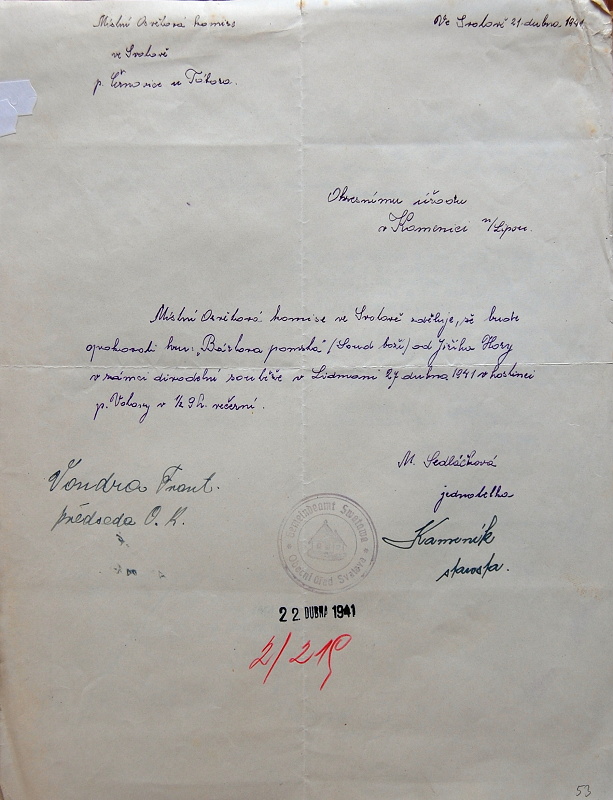 Místní Osvětová komise
Ve Svatavě 21. dubna 1941
ve Svatavě
p. Černovice u Tábora.
Okresnímu úřadu
v Kamenici n/Lipou.
Místní Osvětová komise ve Svatavě sděluje, že bude
opakovati hru: „Bártova pomsta" /Soud boží/ od Jiřího Hory
v rámci divadelní soutěže v Lidmani 27 dubna 1941 v hostinci
p. Vohavy v ½ 9 h. večerní.
M. Sedláčková
jednatelka
Vondra Frant.
předseda O. K.
Kameník
starosta.
Gemeindeamt Swatawa
Obecní úřad Svatava
22. DUBNA 1941
2/219
53